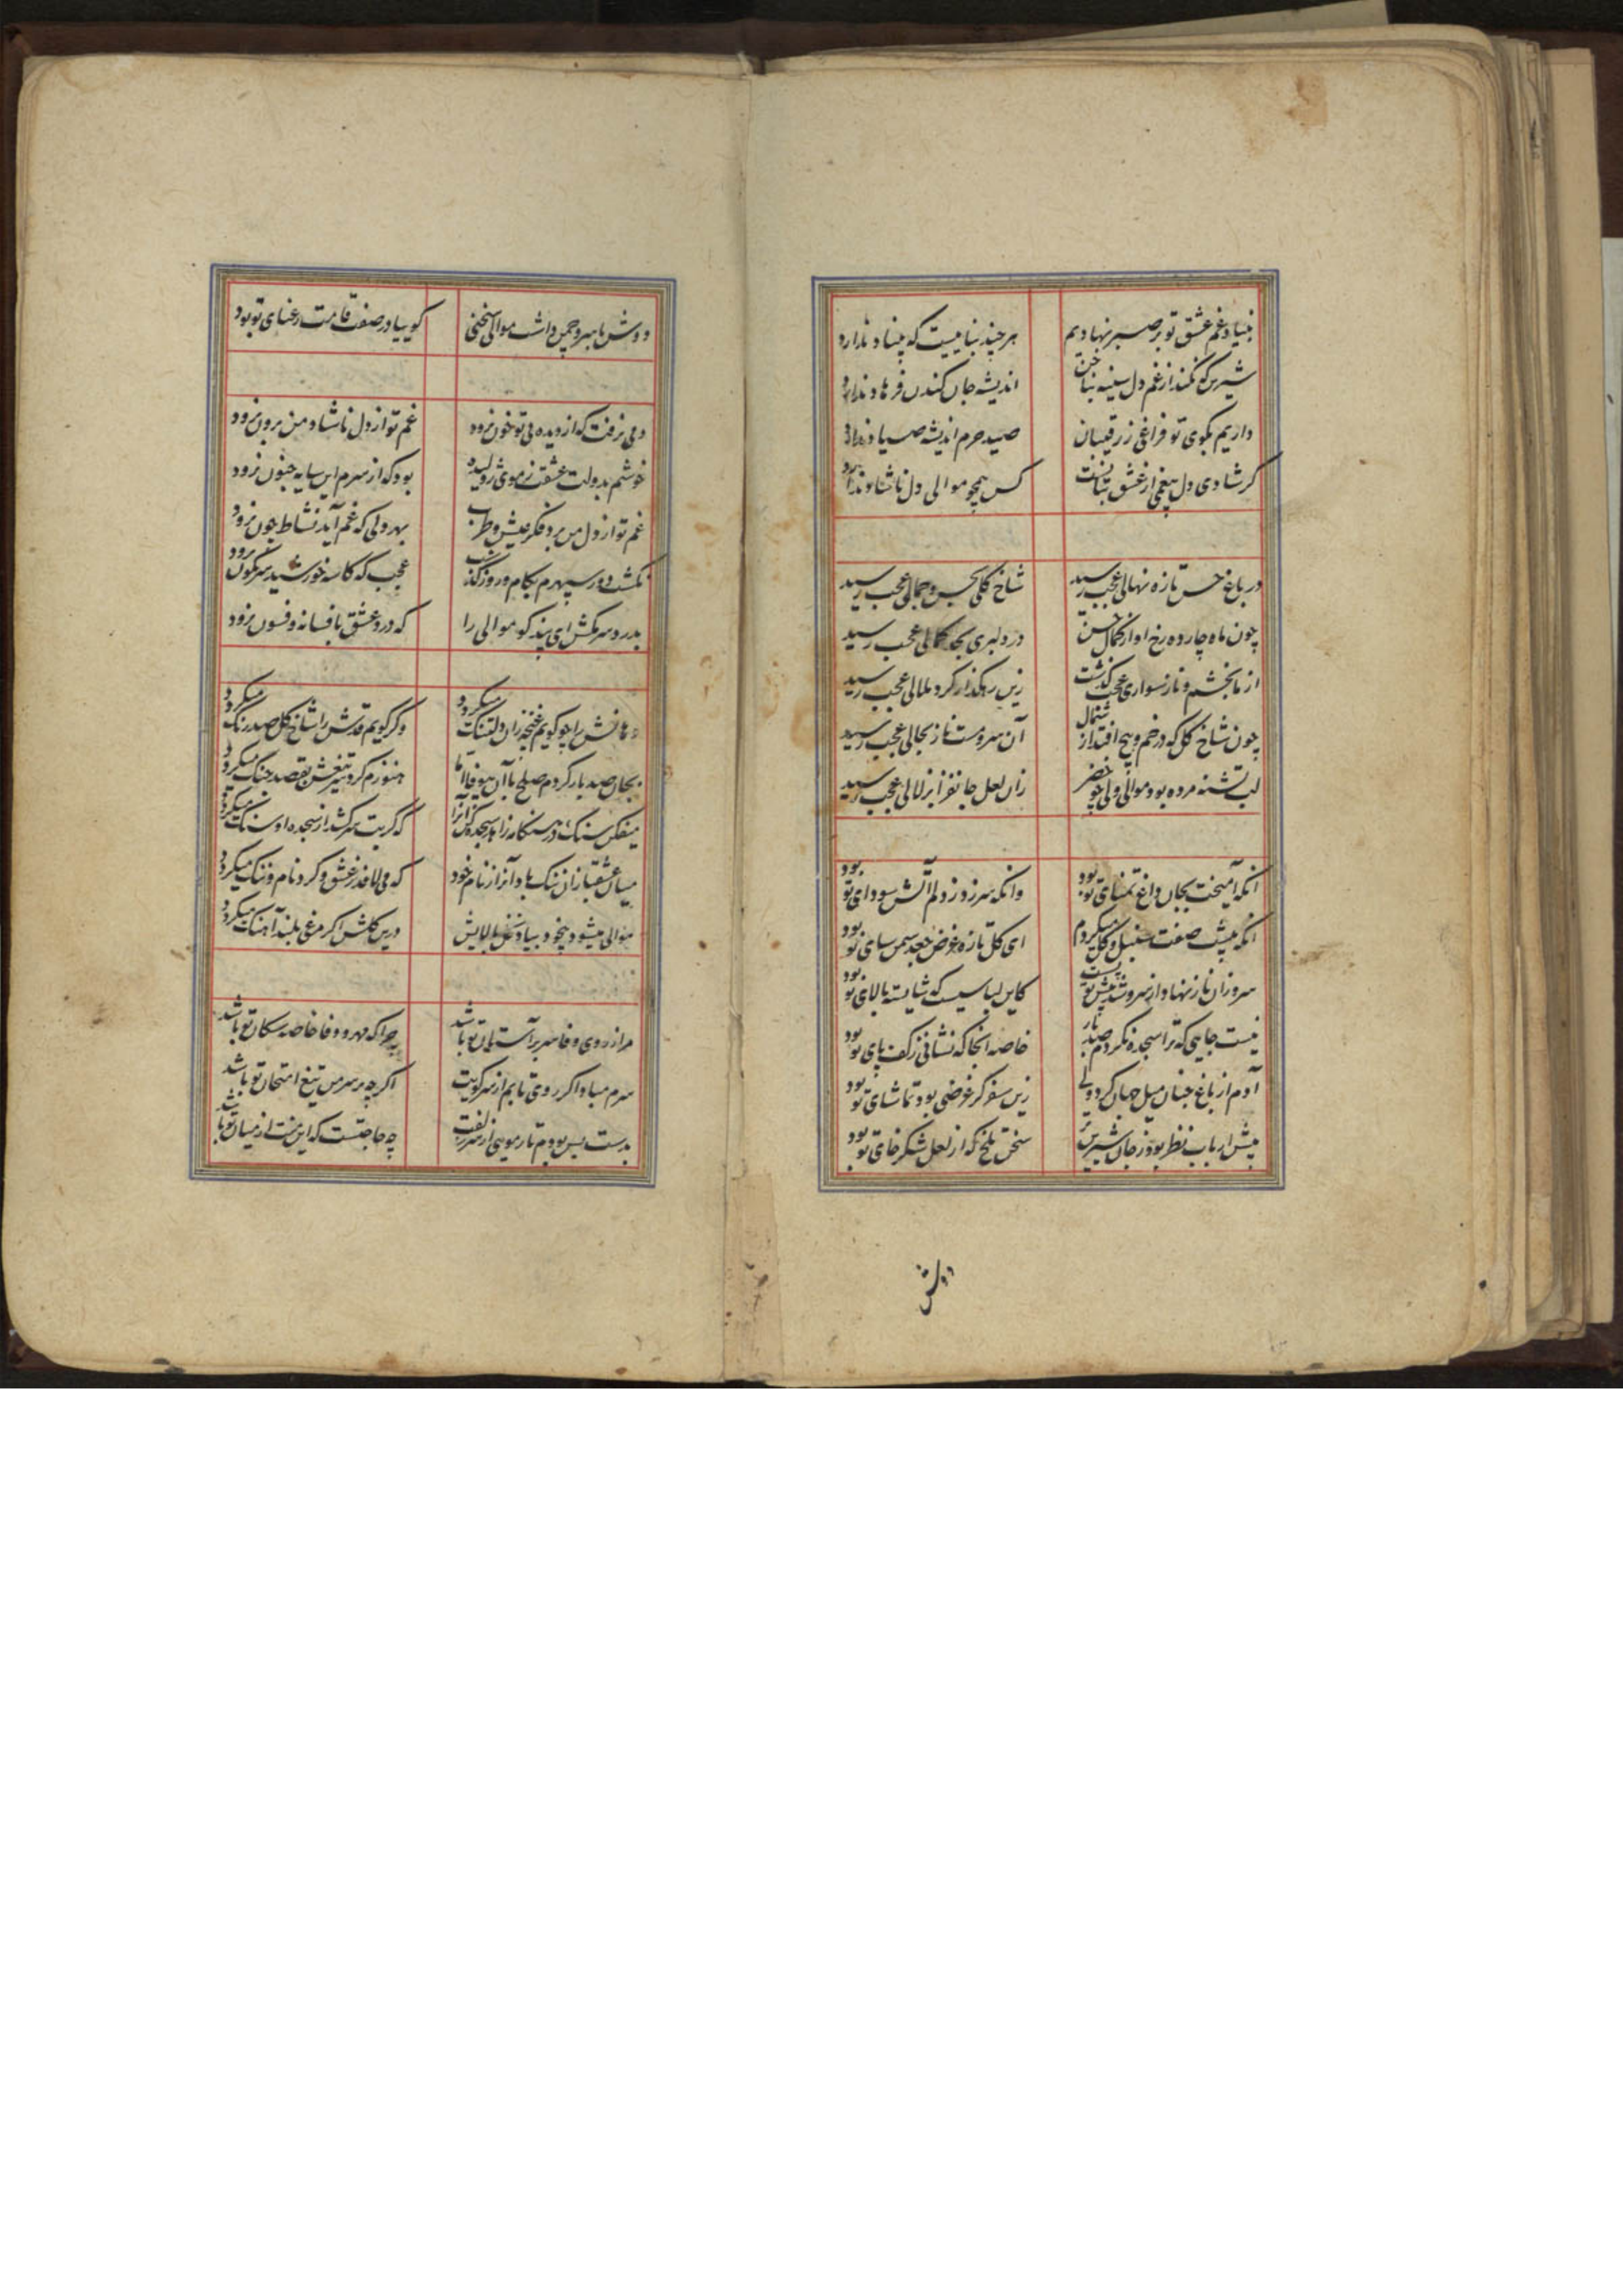 بنیاد غم عشق تو بر صبر نهادیم هر چند بناییست که بنیاد ندارد
شیرین که نکند از غم دل سینه بناخن اندیشه جان کندن فرهاد ندارد
داریم بکوی تو فراغی ز رقیبان صید حرم اندیشه صیاد ندارد
کر شادی دل بیغمی از عشق بتانست کس همچو موالی دل ناشاد ندارد
در باغ حسن تازه نهالی عجب رسید شاخ کلی بحسن و جمالی عجب رسید
چون ماه چارده رخ او از کمال حسن در دلبری بحد کمالی عجب رسید
از ما بخشم و ناز سواری عجب کذشت زین رهکذار کرد ملالی عجب رسید
چون شاخ کل که در خم و پیچ افتد از شمال آن سرو مست ناز بحالی عجب رسید
لب تشنه مرده بود موالی ولی چو خضر زان لعل جانفزا بزلالی عجب رسید
انکه آمیخت بجان داغ تمنای تو بود وانکه سر زد ز دلم آتش سودای تو بود
انکه پیشت صفت سنبل و کل میکردم ای کل تازه غرض جعد سمن سای تو بود
سرو زان ناز نهاد از سر و شد پیش تو پست کاین لباسیست که شایسته بالای تو بود
نیست جایی که ترا سجده نکردم صد بار خاصه انجا که نشانی ز کف پای تو بود
آدم از باغ جنان میل جهان کرد ولی زین سفر کر غرضی بود تماشای تو بود
پیش ارباب نظر بود ز جان شیرین تر سخن تلخ که از لعل شکرخای تو بود
دوش
دوش با سرو چمن داشت موالی سخنی کوییا در صفت قامت رعنای تو بود
دمی نرفت که از دیده بی تو خون نرود غم تو از دل ناشاد من برون نرود
خوشم بدولت عشقت ز موی ژولیده بود که از سرم این سایه جنون نرود
غم تو از دل من برد فکر عیش و طرب بهر دلی که غم آید نشاط چون نرود
نکشت دور سپهرم بکام و روز کذشت عجب که کاسه خورشید سرنکون نرود
بدرد سر مکش ای پند کو موالی را که درد عشق بافسانه و فسون نرود
دهانش را چو کویم غنچه زان دلتنک میکردد وکر کویم قدش را شاخ کل صد رنک میکردد
بجان صد بار کردم صلح با آن بیوفا اما هنوزم کرد سر تیغش بقصد جنک میکردد
میفکن سنک در هنکامه زاهد سجده کن آنرا که کر بت سر کشد از سجده او سنک میکردد
میان عشقبازان ننک باد آنرا ز نام خود که می لافد ز عشق و کرد نام و ننک میکردد
موالی میشود بیخود بیاد نخل بالایش درین کلشن اکر مرغی بلند آهنک میکردد
مرا ز روی وفا سر بر آستان تو باشد چرا که مهر و وفا خاصه سکان تو باشد
سرم مباد اکر روی تابم از سر کویت اکرچه بر سر من تیغ امتحان تو باشد
بدست بس بودم تار مویی از سر زلفت چه حاجتست که این منت از میان تو باشد